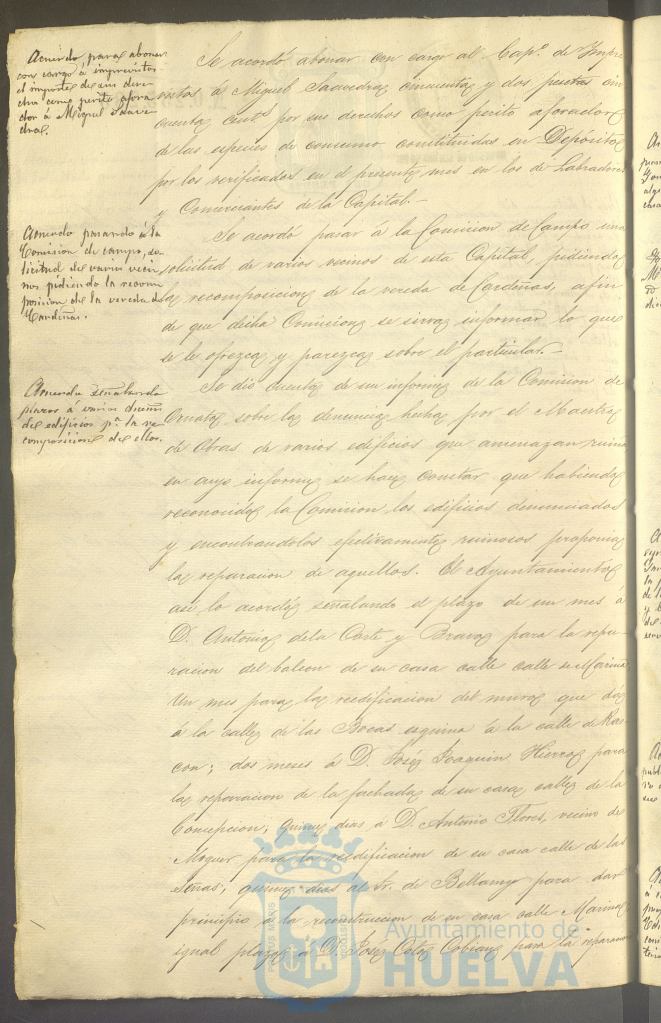 Acuerdo para abonar
con cargo á imprevistos
el importe de sus dere-
chos como perito afora
dor á Miguel Saave
dra.
Se acordó abonar con cargo al Capº. de Impre
vistos á Miguel Saavedra cincuenta y dos pesetas cin
cuenta centˢ por sus derechos como perito aforador
de las especies de consumo constituidas en Depósito
por los verificados en el presente mes en los de Labradores
y Comerciantes de la Capital.-
Acuerdo pasando á la
Comision de campo, so-
licitud de varios veci
nos pidiendo la recom
posicion de la vereda de
Cardeñas.
Se acordó pasar á la Comision de Campo, una
solicitud de varios vecinos de esta Capital, pidiendo
la recomposicion de la vereda de Cardeñas, afin
de que dicha Comision se sirva informar lo que
se le ofrezca y parezca sobre el particular.-
Acuerdo señalando
plazos á varios dueños
de edificios pª. la re
composicion de ellos.
Se dió cuenta de un informe de la Comision de
Ornato sobre la denuncia hecha por el Maestro
de Obras de varios edificios que amenazan ruina
en cuyo informe se hace constar que habiendo
reconocido la Comision los edificios denunciados
y encontrandolos efectivamente ruinosos proponia
la reparacion de aquellos. El Ayuntamiento
asi lo acordó señalando el plazo de un mes á
D. Antonio de la Corte y Bravo para la repa-
racion del balcon de su casa calle calle Marina
Un mes para la reedificacion del muro que dá
á la calle de las Bocas esquina á la calle de Ras
con; dos meses á D. José Joaquin Hierro para
la reparacion de la fachada de su casa calle de la
Concepcion; quince dias á D. Antonio Flores, vecino de
Moguer para la reedificacion de su casa calle de las
Señas; quince dias al Sr. de Bellamy para dar
principio á la reconstruccion de su casa calle Marina
igual plazo á D. José Cobian para la reparacion
PORTUS MARIS
Ayuntamiento de
HUELVA